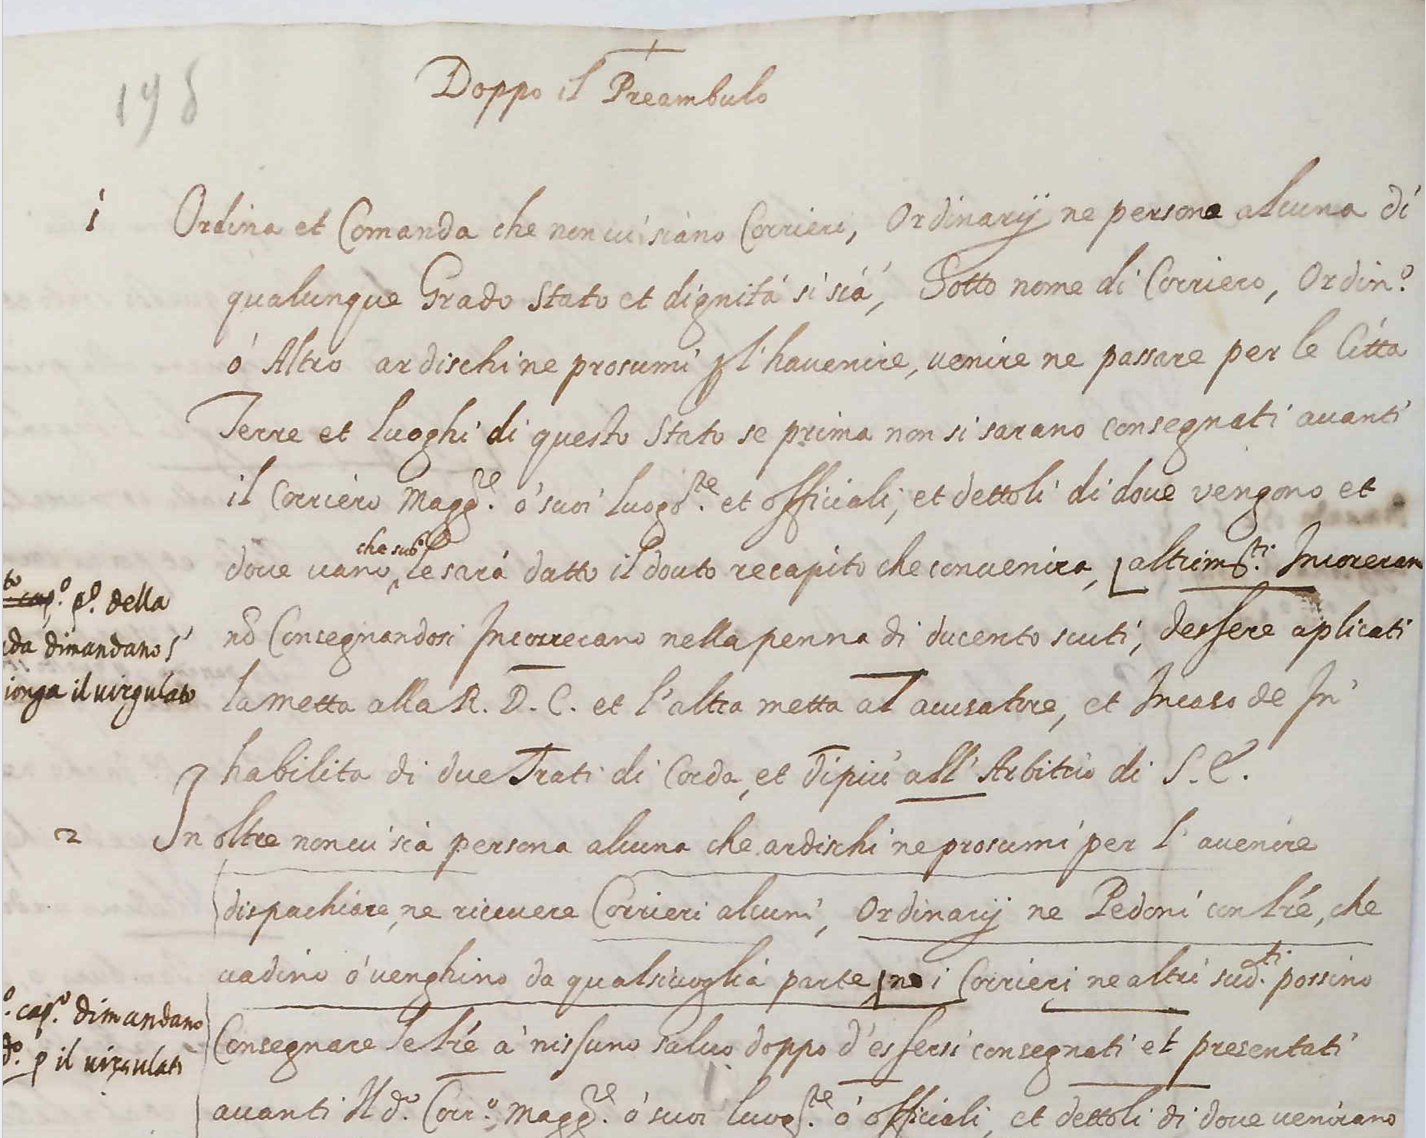 198
Doppo il Preambulo
1 Ordina et Comanda che non vi siano Corrieri, Ordinarij ne persona alcuna di
qualunque Grado Stato et dignitá si siá, Sotto nome di Corriero, Ordin.º
ó Altro ardischi ne prosumi p l'havenire, venire ne passare per le Cittá
Terre et luoghi di questo Stato se prima non si sarano consegnati avanti
il Corriero Magg.re ó suoi luogo.te et officiali, et dettoli di dove vengono et
dove vano, che sub.º le sará datto il douto recapito che convenira, altrim.ti Incoreran
nõ Consegnandosi Incorrerano nella penna di ducento scuti, d'essere aplicati
la metta alla R. D. C. et l'altra metta al accusatore, et In caso de In'
habilita di due Trati di Corda, et di piu all'Arbitrio di S. E.
to cap.º p.º della
da dimandano s'
ionga il virgulato
2 In oltre non vi siá persona alcuna che ardischi ne prosumi per l'avenire
dispachiare, ne ricevere Corrieri alcuni, Ordinarij ne Pedoni con lré, che
vadino ó venghino da qualsivogliá parte, ne i Corrieri ne altri sud.ti possino
Consegnare le lré á nissuno salvo doppo d'essersi consegnati et presentati
avanti Il d.º Corr.º Magg.re ó suoi luog.te ó officiali, et dettoli di dove venirano
º cap.º dimandano
dº. p il virgulati